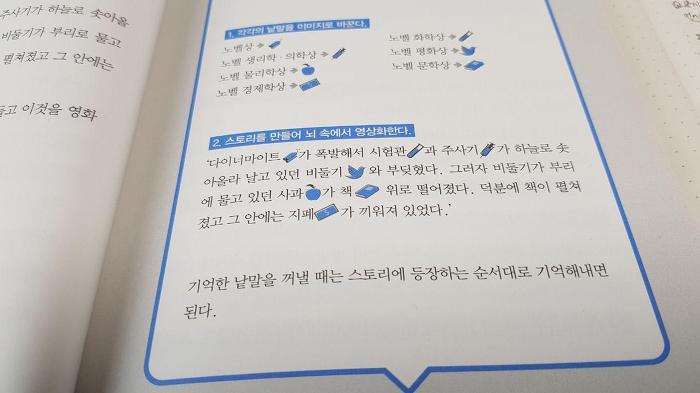 주사기가 하늘로 솟아올
비둘기가 부리로 물고
펼쳐졌고 그 안에는
고 이것을 영화
1. 각각의 낱말을 이미지로 바꾼다.
노벨상 →
노벨 생리학·의학상 →
노벨 물리학상 →
노벨 경제학상 →
노벨 화학상 →
노벨 평화상 →
노벨 문학상 →
2. 스토리를 만들어 뇌 속에서 영상화한다.
‘다이너마이트 가 폭발해서 시험관 과 주사기 가 하늘로 솟
아올라 날고 있던 비둘기 와 부딪혔다. 그러자 비둘기가 부리
에 물고 있던 사과 가 책 위로 떨어졌다. 덕분에 책이 펼쳐
졌고 그 안에는 지폐 가 끼워져 있었다.’
기억한 낱말을 꺼낼 때는 스토리에 등장하는 순서대로 기억해내면
된다.